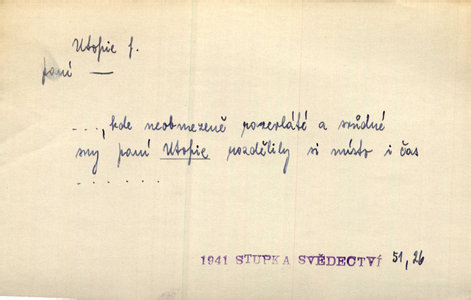 Utopie f.
paní —
...., kde neobmezeně pozevláté a svůdné
sny paní Utopie rozdělily si místo i čas
. . . . . .
1941 STUPKA SVĚDECTVÍ 51, 26